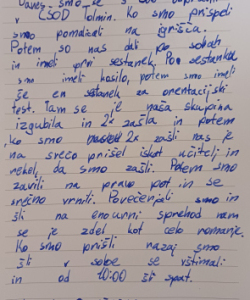 Danes smo se
v CŠOD Tolmin. Ko smo prispeli
smo pomalicali na igrišču.
Potem so nas dali po sobah
in imeli prvi sestanek. Po sestanku
smo imeli kosilo, potem smo imeli
še en sestanek za orientacijski
test. Tam se je naša skupina
izgubila in 2x zašla in potem
ko smo 2x zašli nas je
na srečo prišel iskat učitelj in
rekel, da smo zašli. Potem smo
zavili na pravo pot in se
srečno vrnili. Po večerji smo
šli na enourni sprehod nam
se je zdel kot celo romanje.
Ko smo prišli nazaj smo
šli v sobe se vštimali
in od 10:00 šli spat.